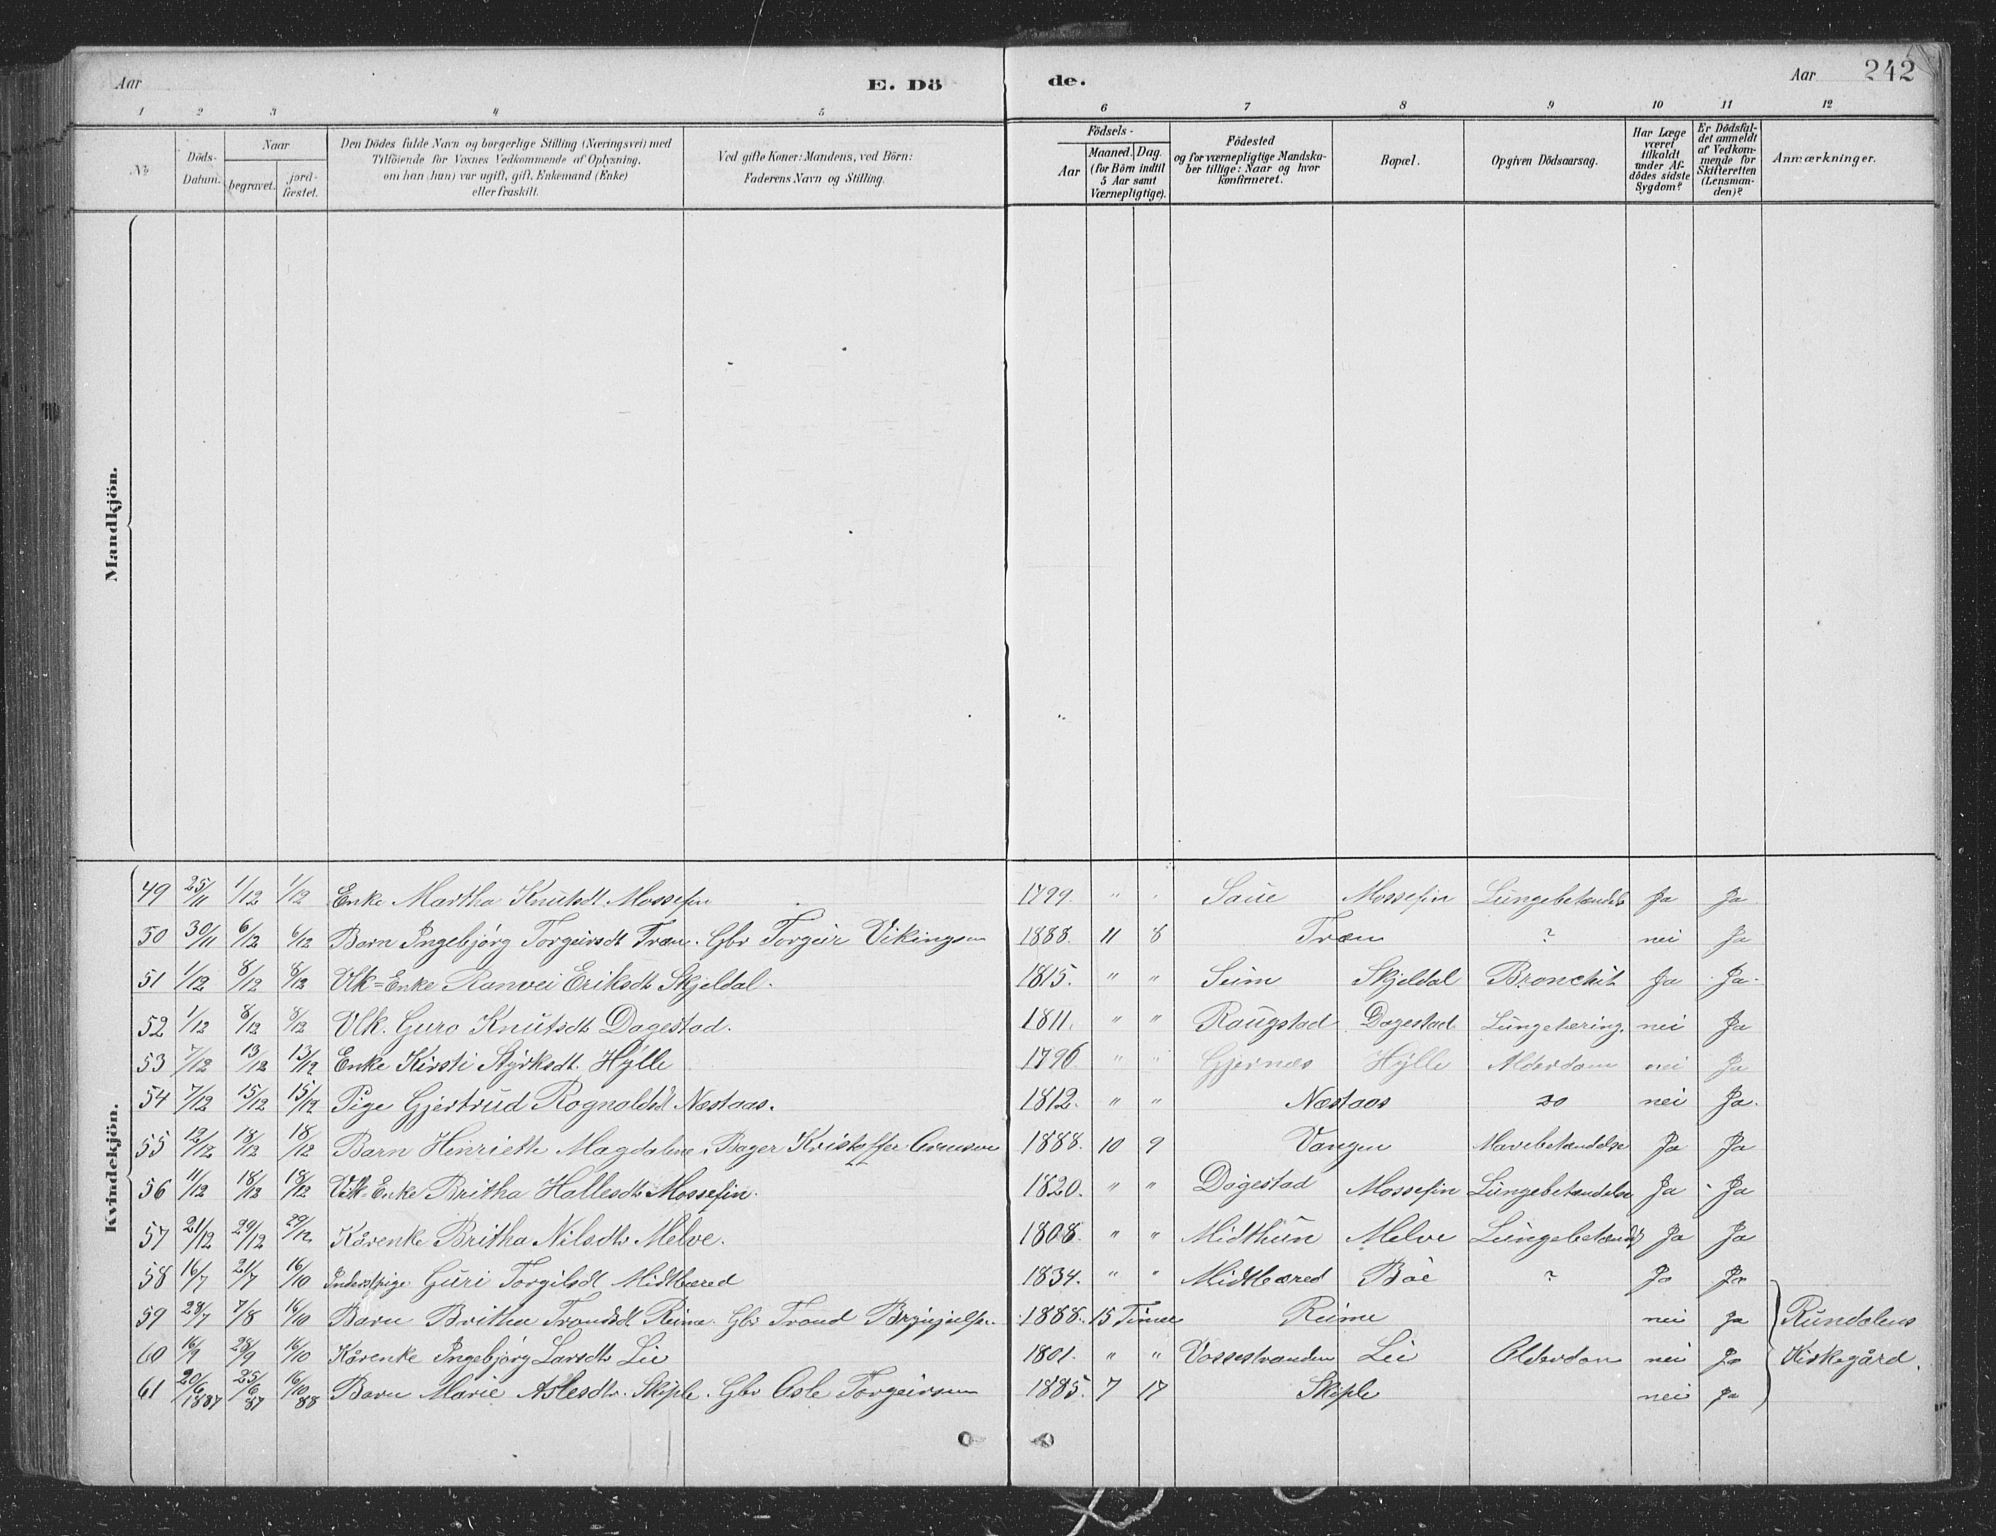 Aar E. Dö de. Aar 242
1 2 3 4 5 6 7 8 9 10 11 12
No
Döds-Datum.
Naar
begravet.
jord-fæstet.
Den Dödes fulde Navn og borgerlige Stilling (Næringsvei) med
Tilföiende for Voxnes Vedkommende af Oplysning.
om han (hun) var ugift, gift, Enkemand (Enke)
eller fraskilt.
Ved gifte Koner: Mandens, ved Börn:
Faderens Navn og Stilling.
Födsels-
Aar
Maaned. Dag.
(for Börn indtil
5 Aar samt
Værnepligtige).
Födested
og for værnepligtige Mandska-
ber tillige: Naar og hvor
konfirmeret.
Bopæl.
Opgiven Dödsaarsag.
Har Læge
været
tilkaldt
under Af-
dödes sidste
Sygdom?
Er Dödsfal-
det anmeldt
af Vedkom-
mende for
Skifteretten
(Lensman-
den)?
Anmærkninger.
Mandkjön.
Kvindekjön.
49 25/11 1/12 1/12 Enke Martha Knutsdt. Mossefin 1799. " " Saue Mossefin Lungebetændels Ja Ja
50 30/11 6/12 6/12 Barn Ingebjørg Torgeirsdt Træn. Gbr Torgeir Vikingsen 1888. 11 8 Træn ? nei Ja
51 1/12 8/12 8/12 Vlk=Enke Ranvei Eriksdt Skjeldal. 1815. " " Seim Skjeldal Bronchit Ja Ja
52 1/12 8/12 8/12 Vlk. Guro Knutsdt Dagestad. 1811. " " Raugstad Dagestad Lungetæring. nei Ja
53 7/12 13/12 13/12 Enke Kirsti Styrksdt. Hylle 1796 " " Gjernæs Hylle Alderdom nei Ja
54 7/12 15/12 15/12 Pige Gjertrud Rognaldsd Næstaas. 1812. " " Næstaas do nei Ja.
55 12/12 18/12 18/12 Barn Henriette Magdalene. Bager Kristoffer 1888. 10 9 Vangen Mavebetændelse Ja Ja
56 11/12 18/12 18/12 Vlk Enke Britha Hallesdt Mossefin. 1820. " " Dagestad Mossefin Lungebetændelse Ja Ja
57 21/12 29/12 29/12 Kårenke Britha Nilsdt. Melve. 1808. " " Midthun Melve Lungebetænds Ja Ja
58 16/7 21/7 16/10 Inderstpige Guri Torgilsdt Midtbæred 1834. " " Midtbæred Böe ? Ja Ja
59 28/7 7/8 16/10 Barn Britha Trondsdt Reime. Gbr Trond Brynjulfsn 1888. 15 Timer Reime nei Ja Rundalens
60 16/9 28/9 16/10 Kårenke Ingebjørg Larsdt Lie 1801. " " Vossestranden Lie Alderdom nei Ja Kirkegård.
61 20/6 1887 25/6 87 16/10 88 Barn Marie Aslesdt. Skiple. Gbr Asle Torgeirsen 1885. 7 17 Skiple nei Ja